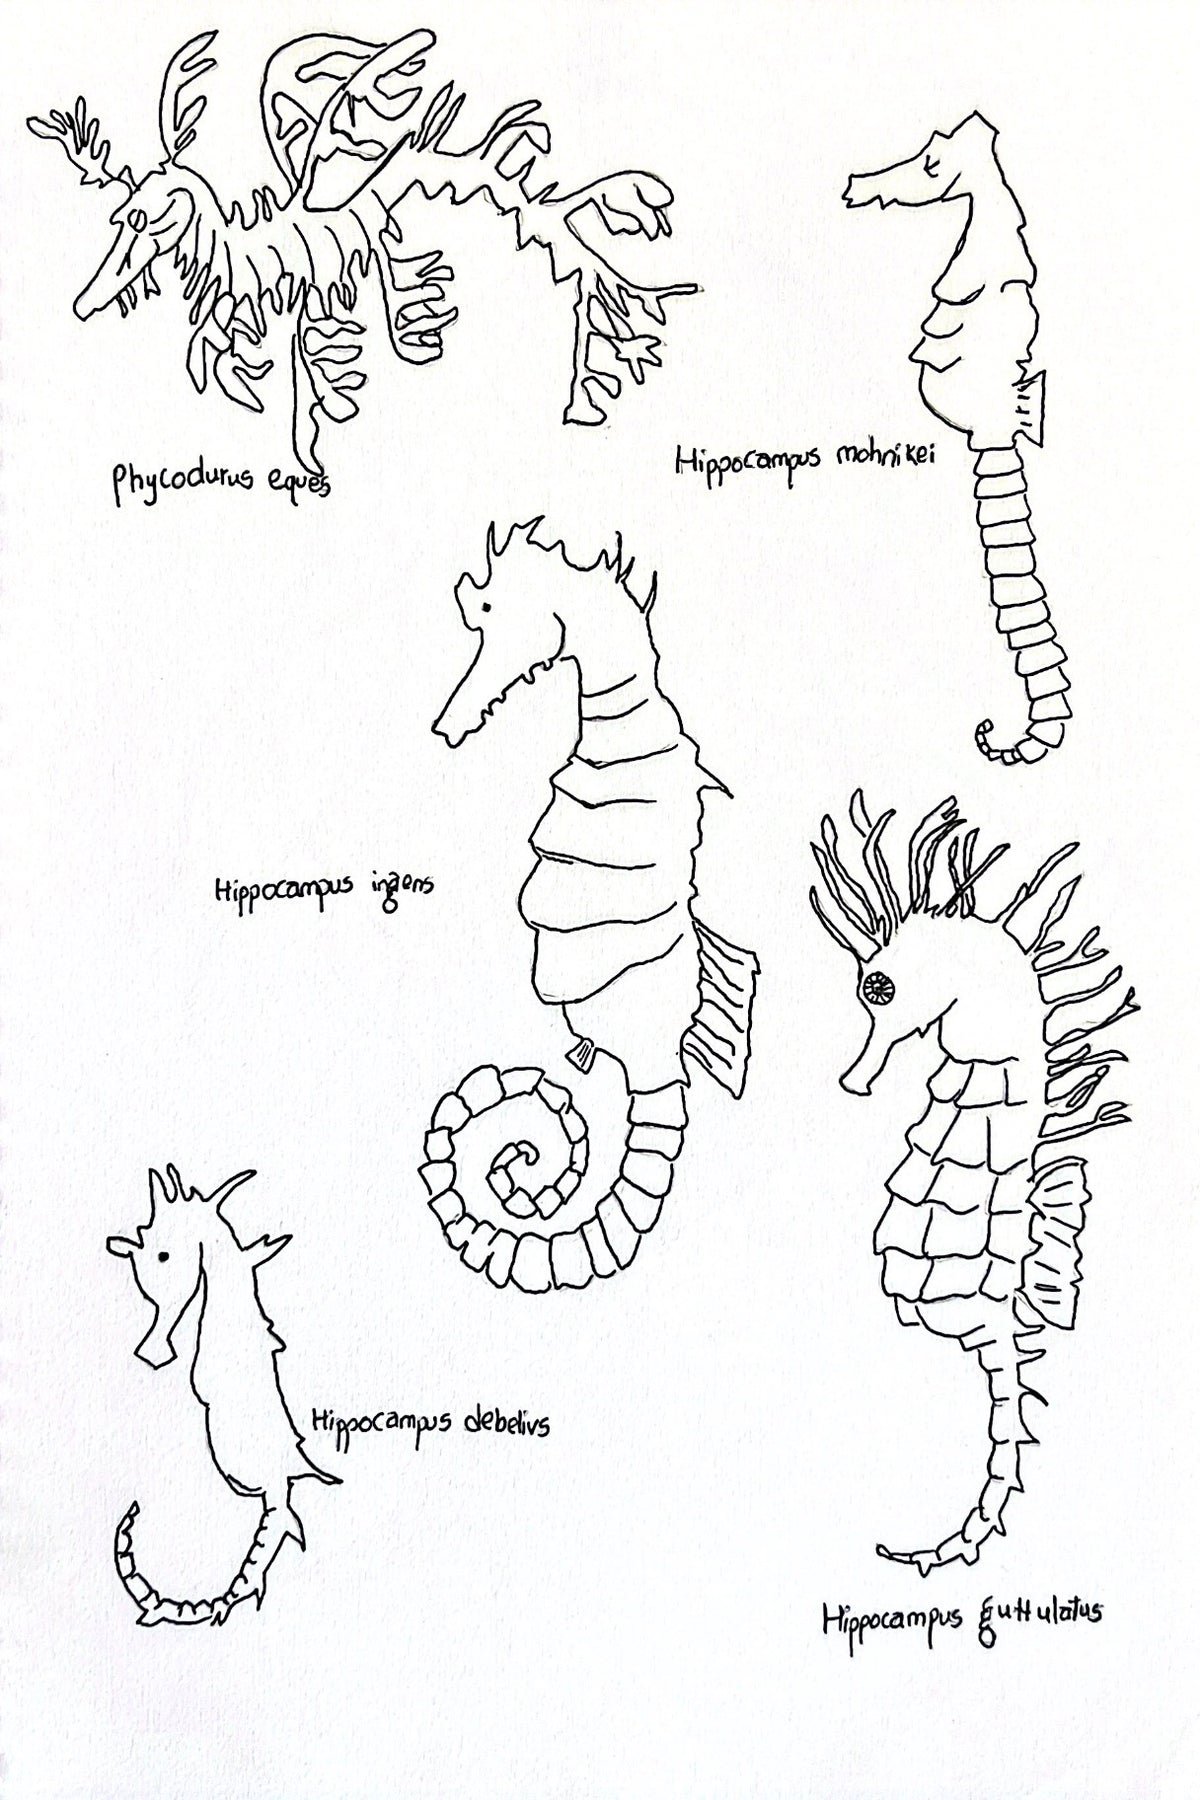 Phycodurus eques
Hippocampus mohnikei
Hippocampus ingens
Hippocampus debelius
Hippocampus guttulatus